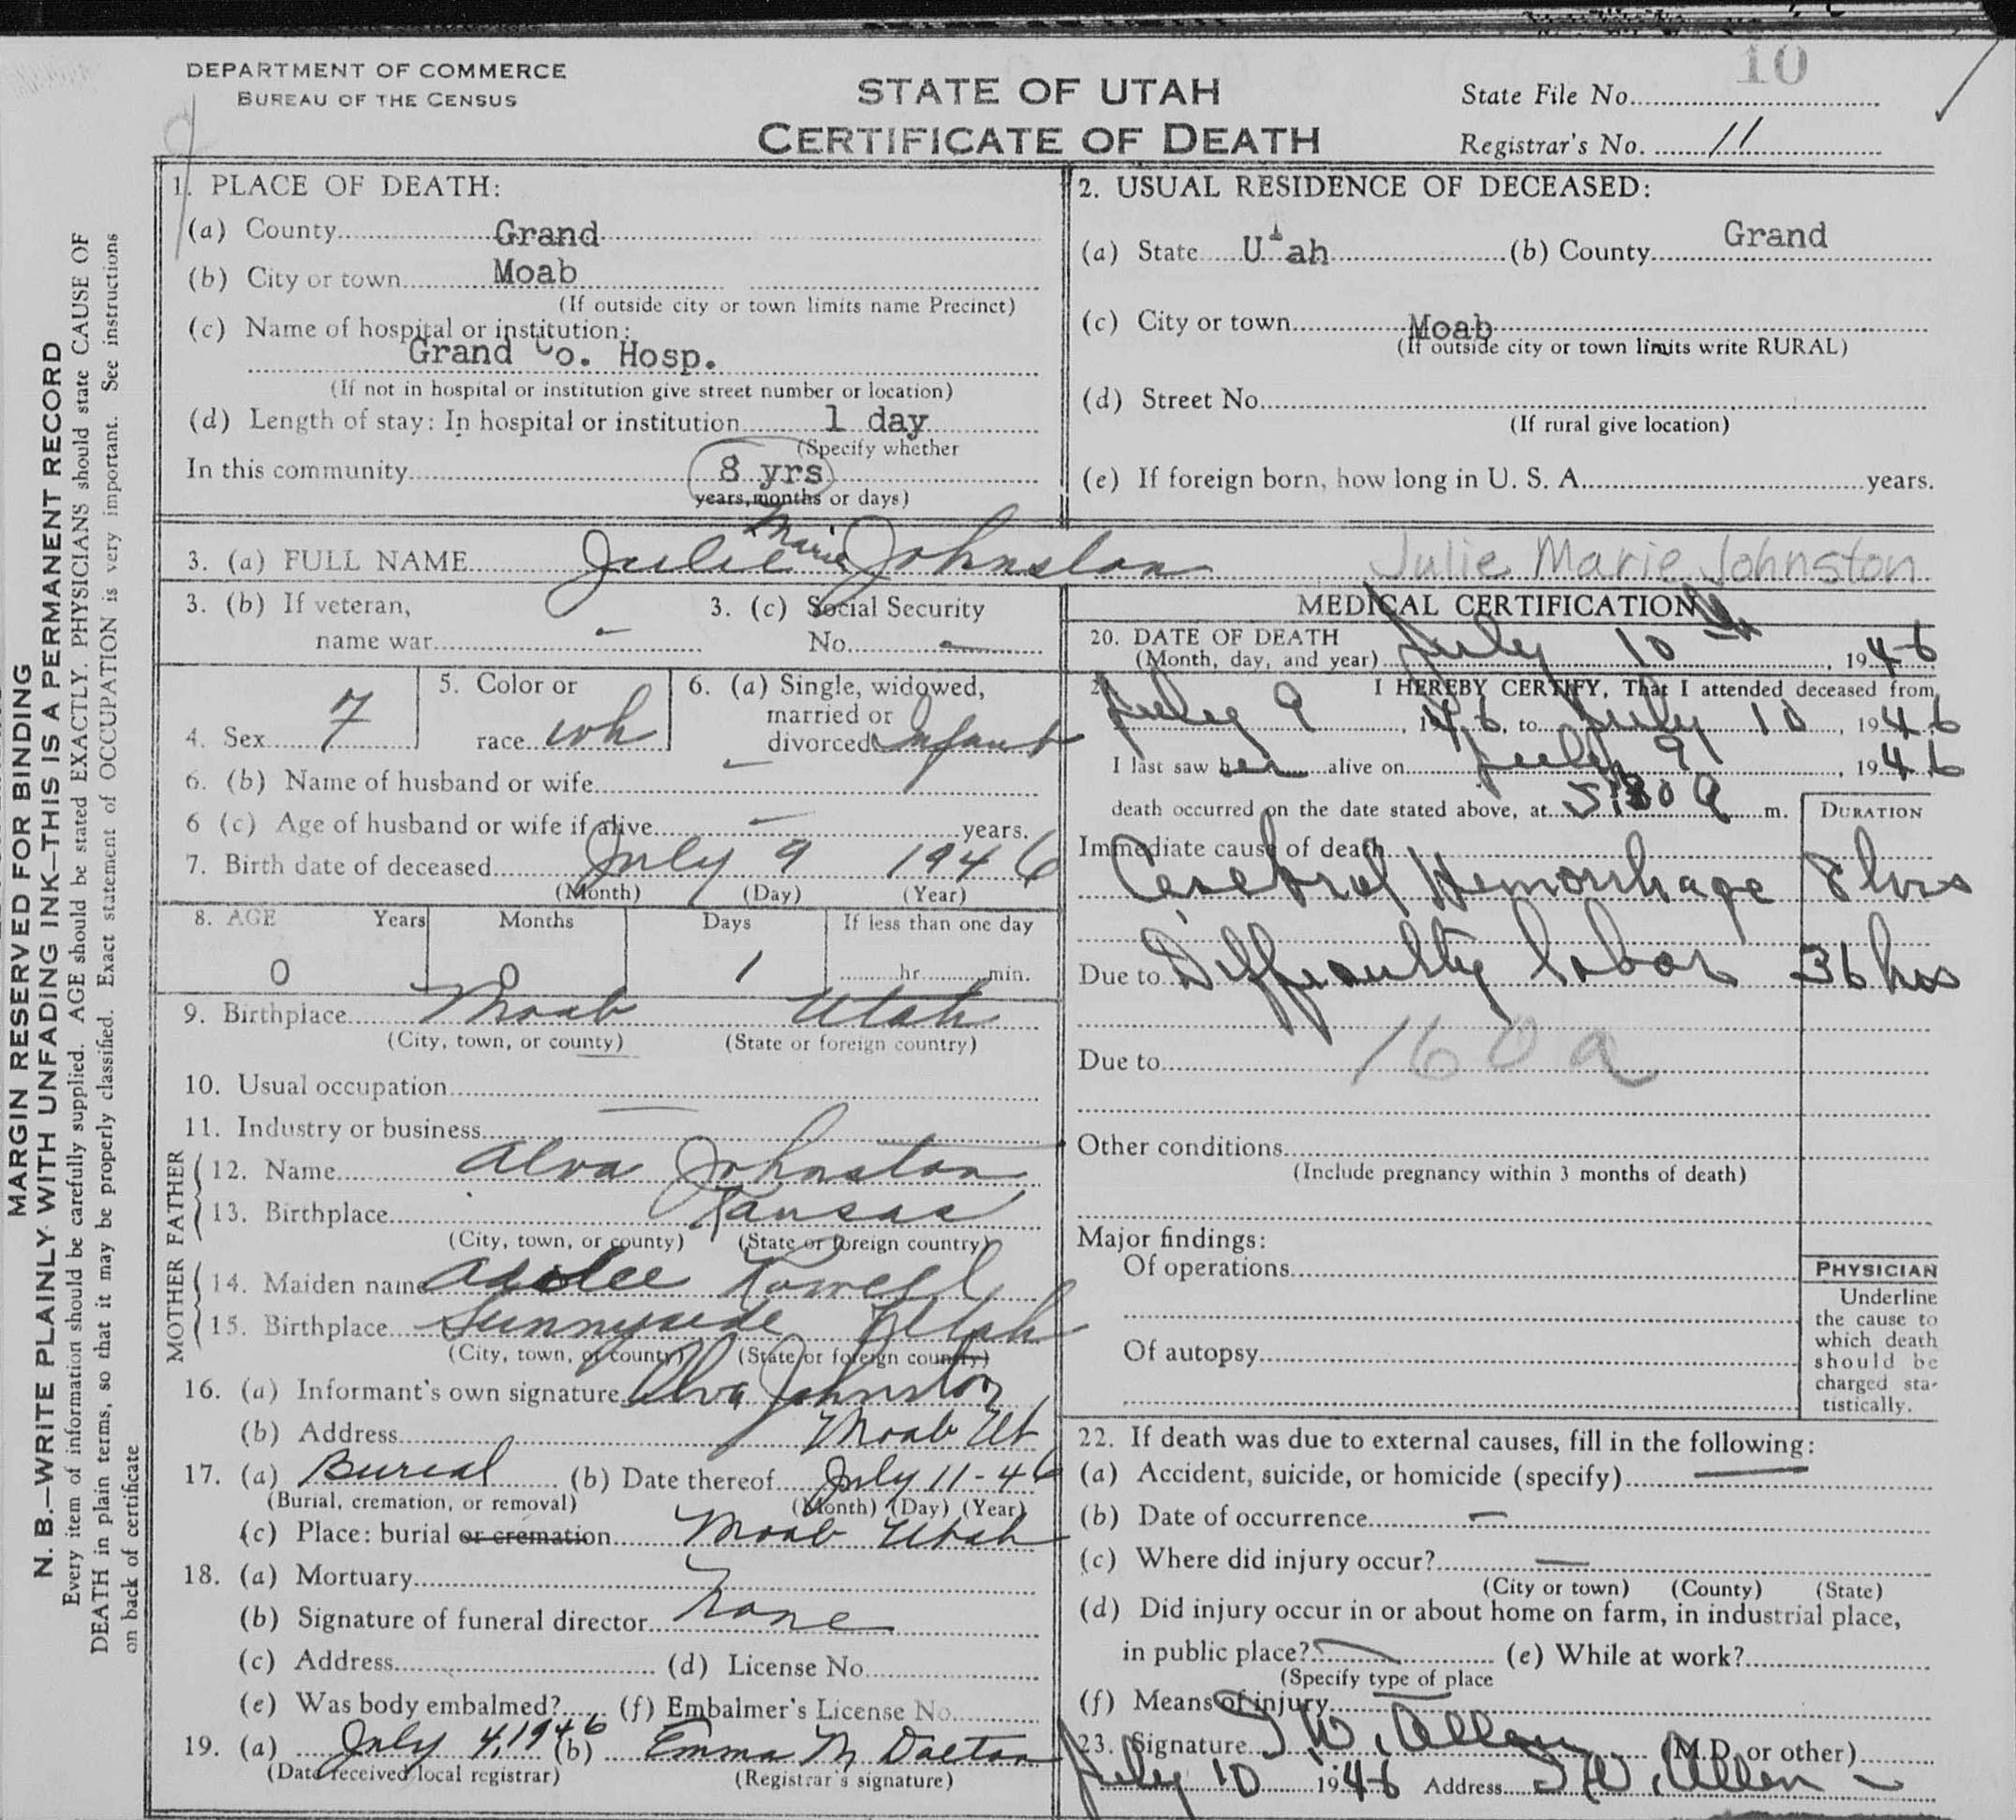 10
DEPARTMENT OF COMMERCE
BUREAU OF THE CENSUS
STATE OF UTAH
CERTIFICATE OF DEATH
State File No.
Registrar's No. 11
MARGIN RESERVED FOR BINDING
N. B.—WRITE PLAINLY WITH UNFADING INK—THIS IS A PERMANENT RECORD
Every item of information should be carefully supplied. AGE should be stated EXACTLY. PHYSICIANS should state CAUSE OF
DEATH in plain terms, so that it may be properly classified. Exact statement of OCCUPATION is very important. See instructions
on back of certificate
1. PLACE OF DEATH:
(a) County Grand
(b) City or town Moab
(If outside city or town limits name Precinct)
(c) Name of hospital or institution:
Grand Co. Hosp.
(If not in hospital or institution give street number or location)
(d) Length of stay: In hospital or institution 1 day
(Specify whether
In this community 8 yrs
years, months or days)
2. USUAL RESIDENCE OF DECEASED:
(a) State Utah (b) County Grand
(c) City or town Moab
(If outside city or town limits write RURAL)
(d) Street No.
(If rural give location)
(e) If foreign born, how long in U. S. A. years.
3. (a) FULL NAME Julie Marie Johnston Julie Marie Johnston
3. (b) If veteran,
name war -
3. (c) Social Security
No. -
4. Sex F
5. Color or
race wh
6. (a) Single, widowed,
married or
divorced Infant
6. (b) Name of husband or wife -
6 (c) Age of husband or wife if alive - years.
7. Birth date of deceased July 9 1946
(Month) (Day) (Year)
8. AGE Years Months Days If less than one day
0 0 1 hr. min.
9. Birthplace Moab Utah
(City, town, or county) (State or foreign country)
10. Usual occupation
11. Industry or business
FATHER
12. Name Alva Johnston
13. Birthplace Kansas
(City, town, or county) (State or foreign country)
MOTHER
14. Maiden name
15. Birthplace Sunnyside Utah
(City, town, or county) (State or foreign country)
16. (a) Informant's own signature Alva Johnston
(b) Address Moab Ut
17. (a) Burial (b) Date thereof July 11-46
(Burial, cremation, or removal) (Month) (Day) (Year)
(c) Place: burial or cremation Moab Utah
18. (a) Mortuary
(b) Signature of funeral director None
(c) Address (d) License No.
(e) Was body embalmed? (f) Embalmer's License No.
19. (a) July 4, 1946 (b) Emma M Dalton
(Date received local registrar) (Registrar's signature)
MEDICAL CERTIFICATION
20. DATE OF DEATH
(Month, day, and year) July 10th, 1946
I HEREBY CERTIFY, That I attended deceased from
July 9, 1946, to July 10, 1946
I last saw her alive on July 9, 1946
death occurred on the date stated above, at 5:30 a m.
DURATION
Immediate cause of death
Cerebral Hemorrhage 8 hrs
Due to Difficulty labor 36 hrs
160a
Due to
Other conditions
(Include pregnancy within 3 months of death)
Major findings:
Of operations
Of autopsy
PHYSICIAN
Underline
the cause to
which death
should be
charged sta-
tistically.
22. If death was due to external causes, fill in the following:
(a) Accident, suicide, or homicide (specify) —
(b) Date of occurrence —
(c) Where did injury occur? —
(City or town) (County) (State)
(d) Did injury occur in or about home on farm, in industrial place,
in public place? (e) While at work?
(Specify type of place
(f) Means of injury
23. Signature I W. Allen (M.D. or other)
July 10 1946 Address I W. Allen